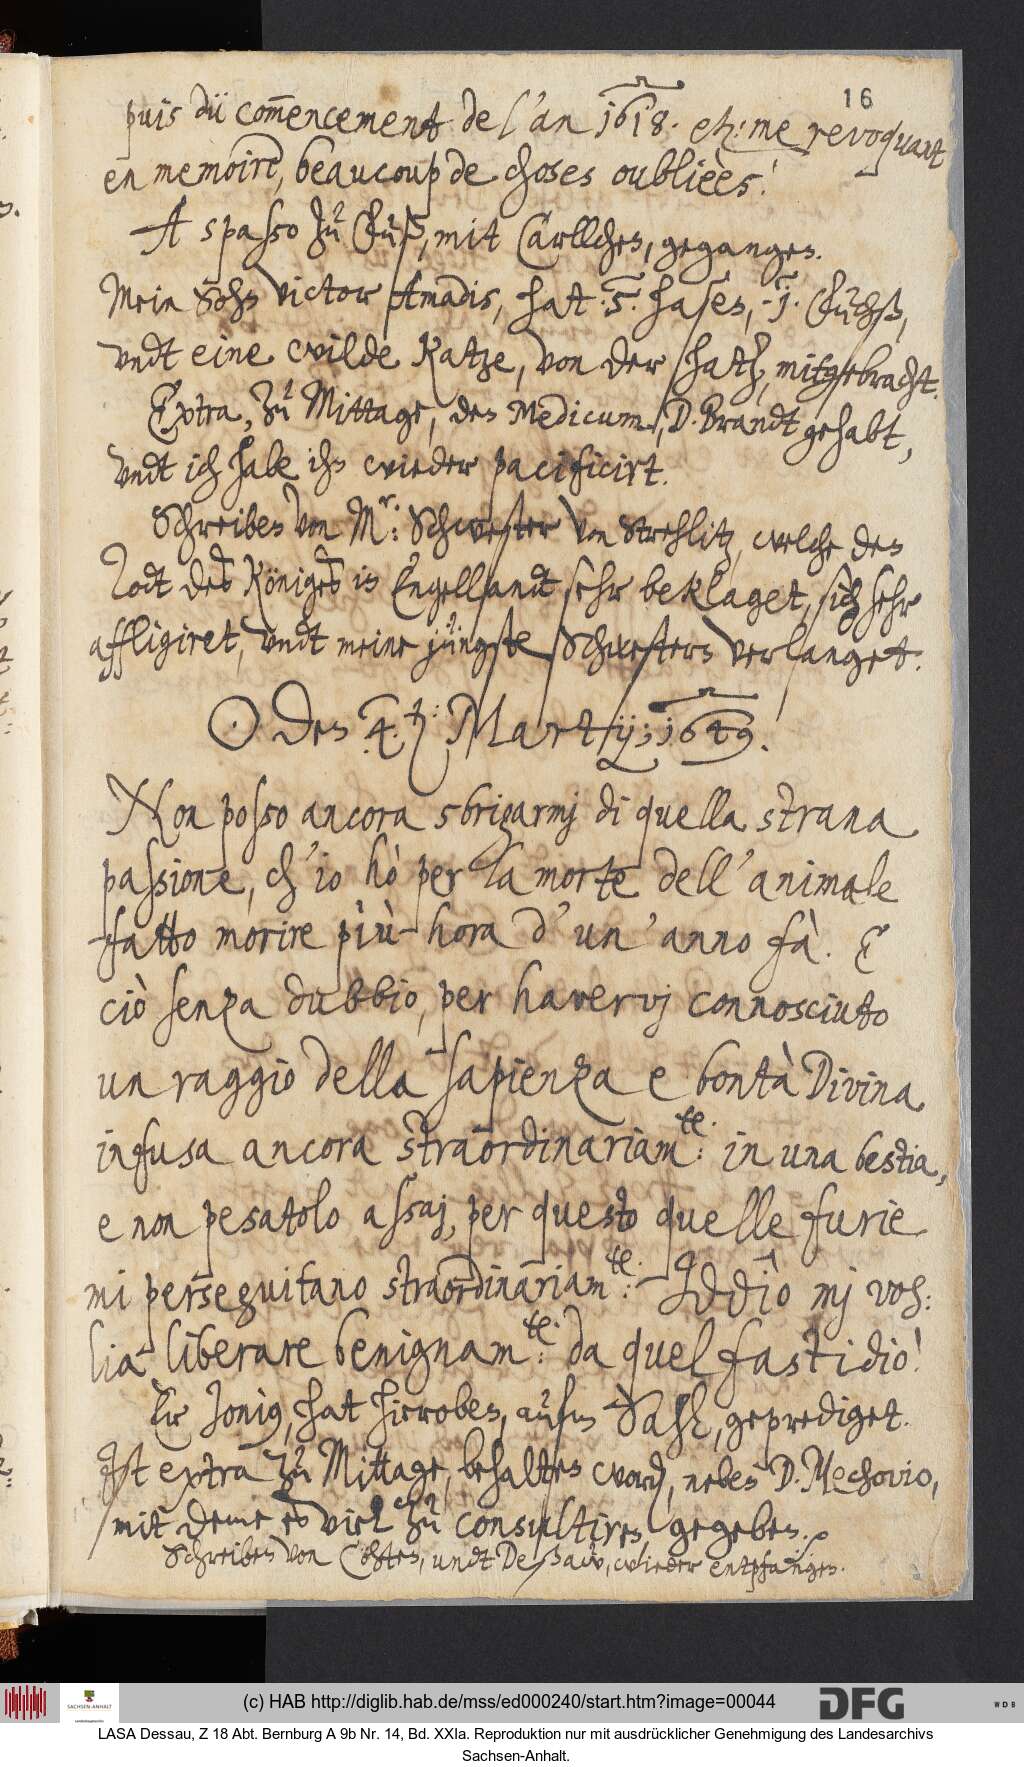 16
puis dü com̄encement de l'an 1618. et: me revoquant
en memoire, beaucoup de choses oublièes!
A spasso zu Fuß, mit Carllchen, gegangen.
Mein Sohn Victor Amadis, hat .5. hasen, .1. Fuchß,
vndt eine wilde Katze, von der hatz, mitgebracht.
Extra, zu Mittage, den Medicum, D. Brandt gehabt,
vndt ich habe ihn wieder pacificirt.
Schreiben von Mr: Schwester von Strehlitz, welche den
Todt des Königes in Engellandt sehr beklaget, sich sehr
affligiret, vndt meine jüngste Schwestern verlanget.
☉ den 4t: Martij; 1649.
Non posso ancora sbrigarmj di quella strana
passione, ch'io hò per la morte dell'animale
fatto morire più hora d'un'anno fà. E
ciò senza dubbio, per havervj connosciuto
un raggio della sapienza e bontà Divina
infusa ancora straordinariamte: in una bestia,
e non pesatolo assaj, per questo quelle furie
mi perseguitano straordinariamte: Iddîo mj vog:
lia liberare benignamte: da quel fastidio!
Er Jonig, hat hieroben, aufm Sahl, geprediget.
Ist extra zu Mittage, behalten word, neben D. Mechovio,
mit deme es viel zu consultiren gegeben.
Schreiben von Cöhten, undt Deßaw, wieder entpfangen.
(c) HAB http://diglib.hab.de/mss/ed000240/start.htm?image=00044
SACHSEN-ANHALT
DFG
WDB
LASA Dessau, Z 18 Abt. Bernburg A 9b Nr. 14, Bd. XXIa. Reproduktion nur mit ausdrücklicher Genehmigung des Landesarchivs
Sachsen-Anhalt.